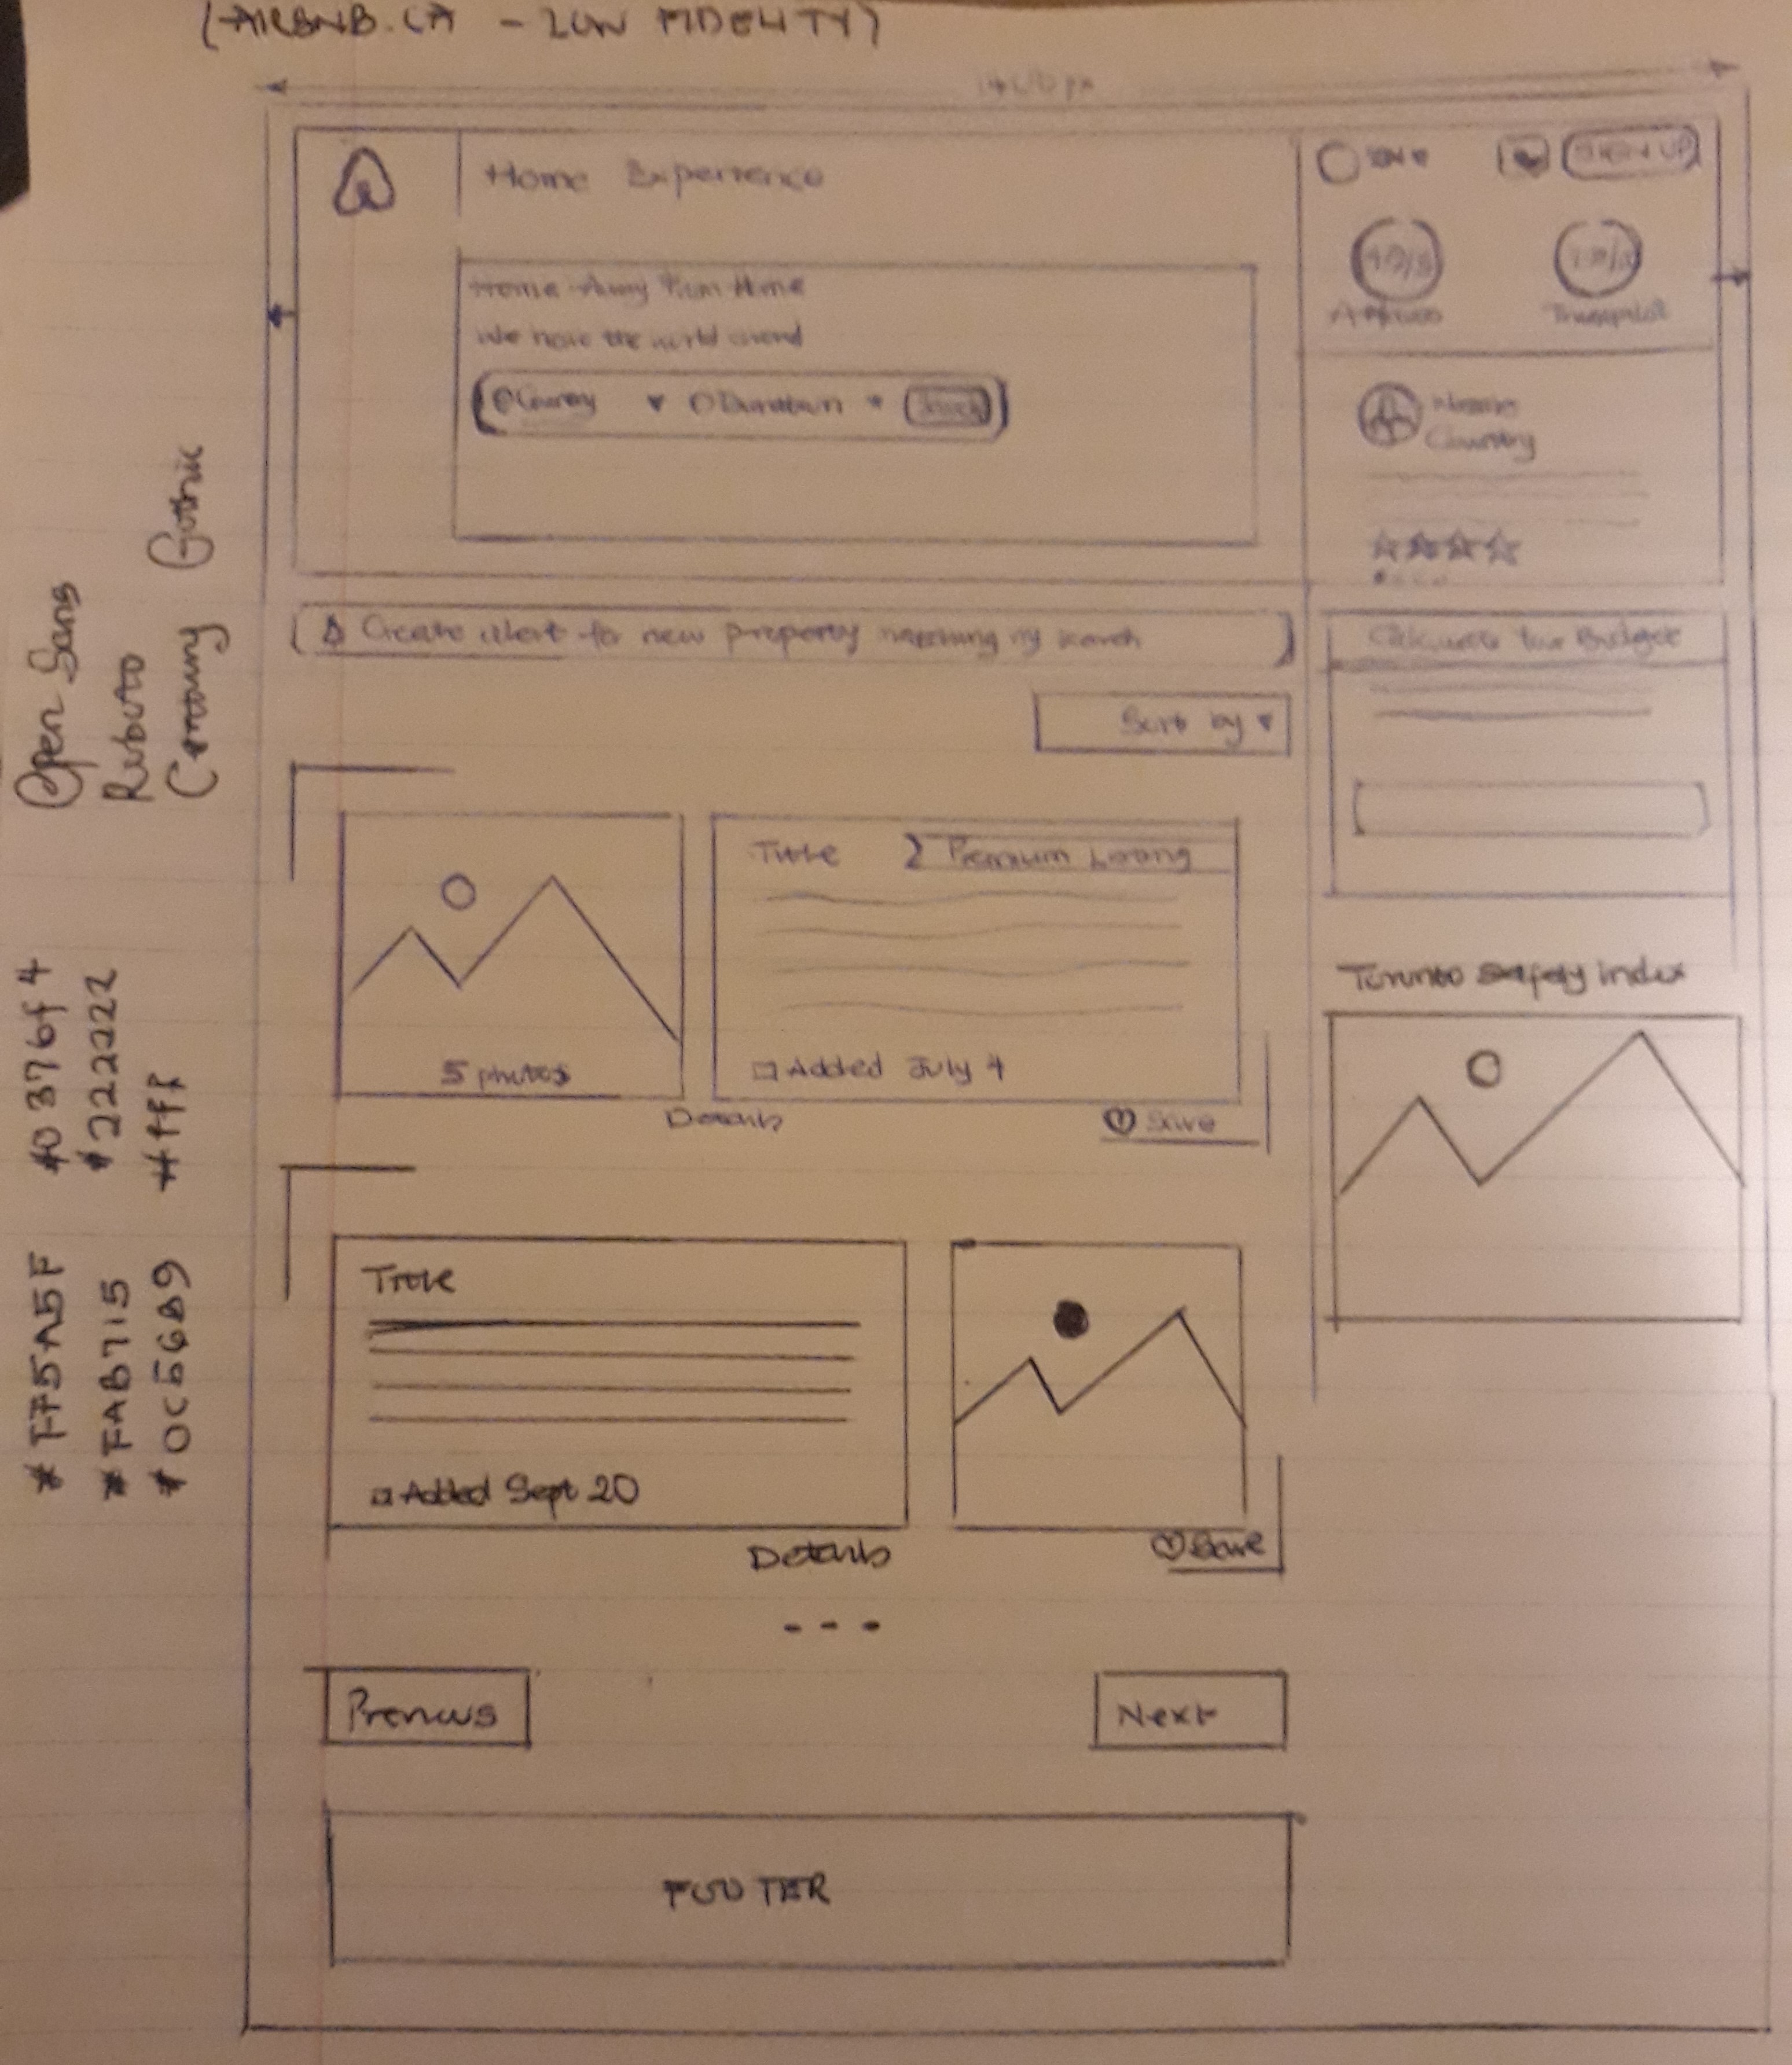 (AIRBNB.CA - LOW FIDELITY)
Home Experience
SIGN UP
Home Away From Home
We have the world
Country Duration Search
Name
Country
Create alert for new property matching my search
Calculate Budget
Sort by
Title Premium
5 photos
Added July 4
Details Save
Toronto Safety index
Title
Added Sept 20
Details Save
---
Previous Next
FOOTER
Open Sans
Roboto
Century Gothic
#0376f4
#222222
#fff
#FF5A5F
#FAB715